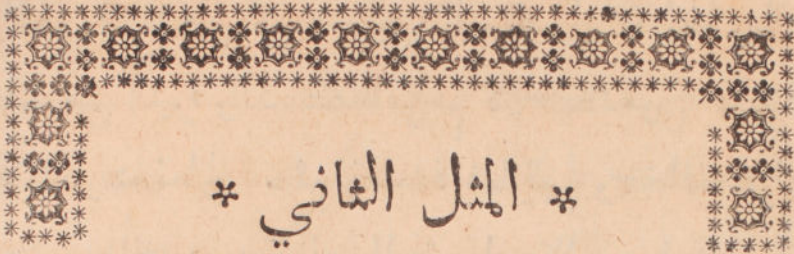 * المثل الثاني *